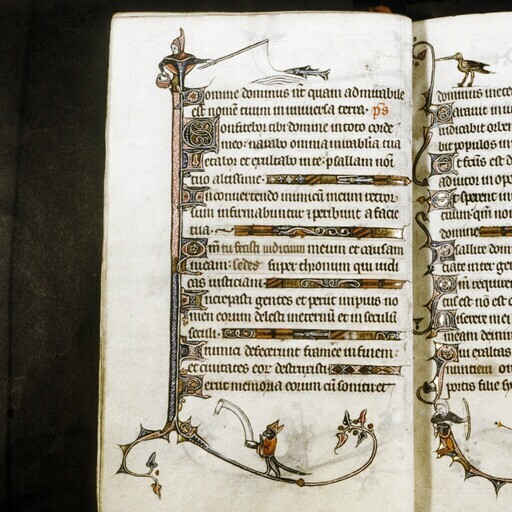 Domine dominus nr̄ quam admirabile
est nomen tuum in universa terra. ps
Confitebor tibi domine in toto corde
meo: narrabo omnia mirabilia tua
Letabor et exultabo in te: psallam noī
tuo altissime
In convertendo inimicum meum retror
sum infirmabuntur et peribunt a facie
tua
Qm̄ tu fecisti iudicium meum et causam
meam: sedes super thronum qui iudi
cas iusticiam
Increpasti gentes et periit impius no
men eorum delesti in eternū et in seculū
seculi
Inimici defecerunt framee in finem:
et civitates eor destruxisti
Periit memoria eorum cū sonitu: et
dominus in ete
indicabit orbem
bit populos in
Et factus est d
adiutor in op
Et sperent in
tuum: qm̄ non
domine
Psallite domi
ciate inter gen
Qm̄ requiren
tus est nō est o
Miserere mei
meam de inim
Qui exaltas
nuntiem
portis filie sy